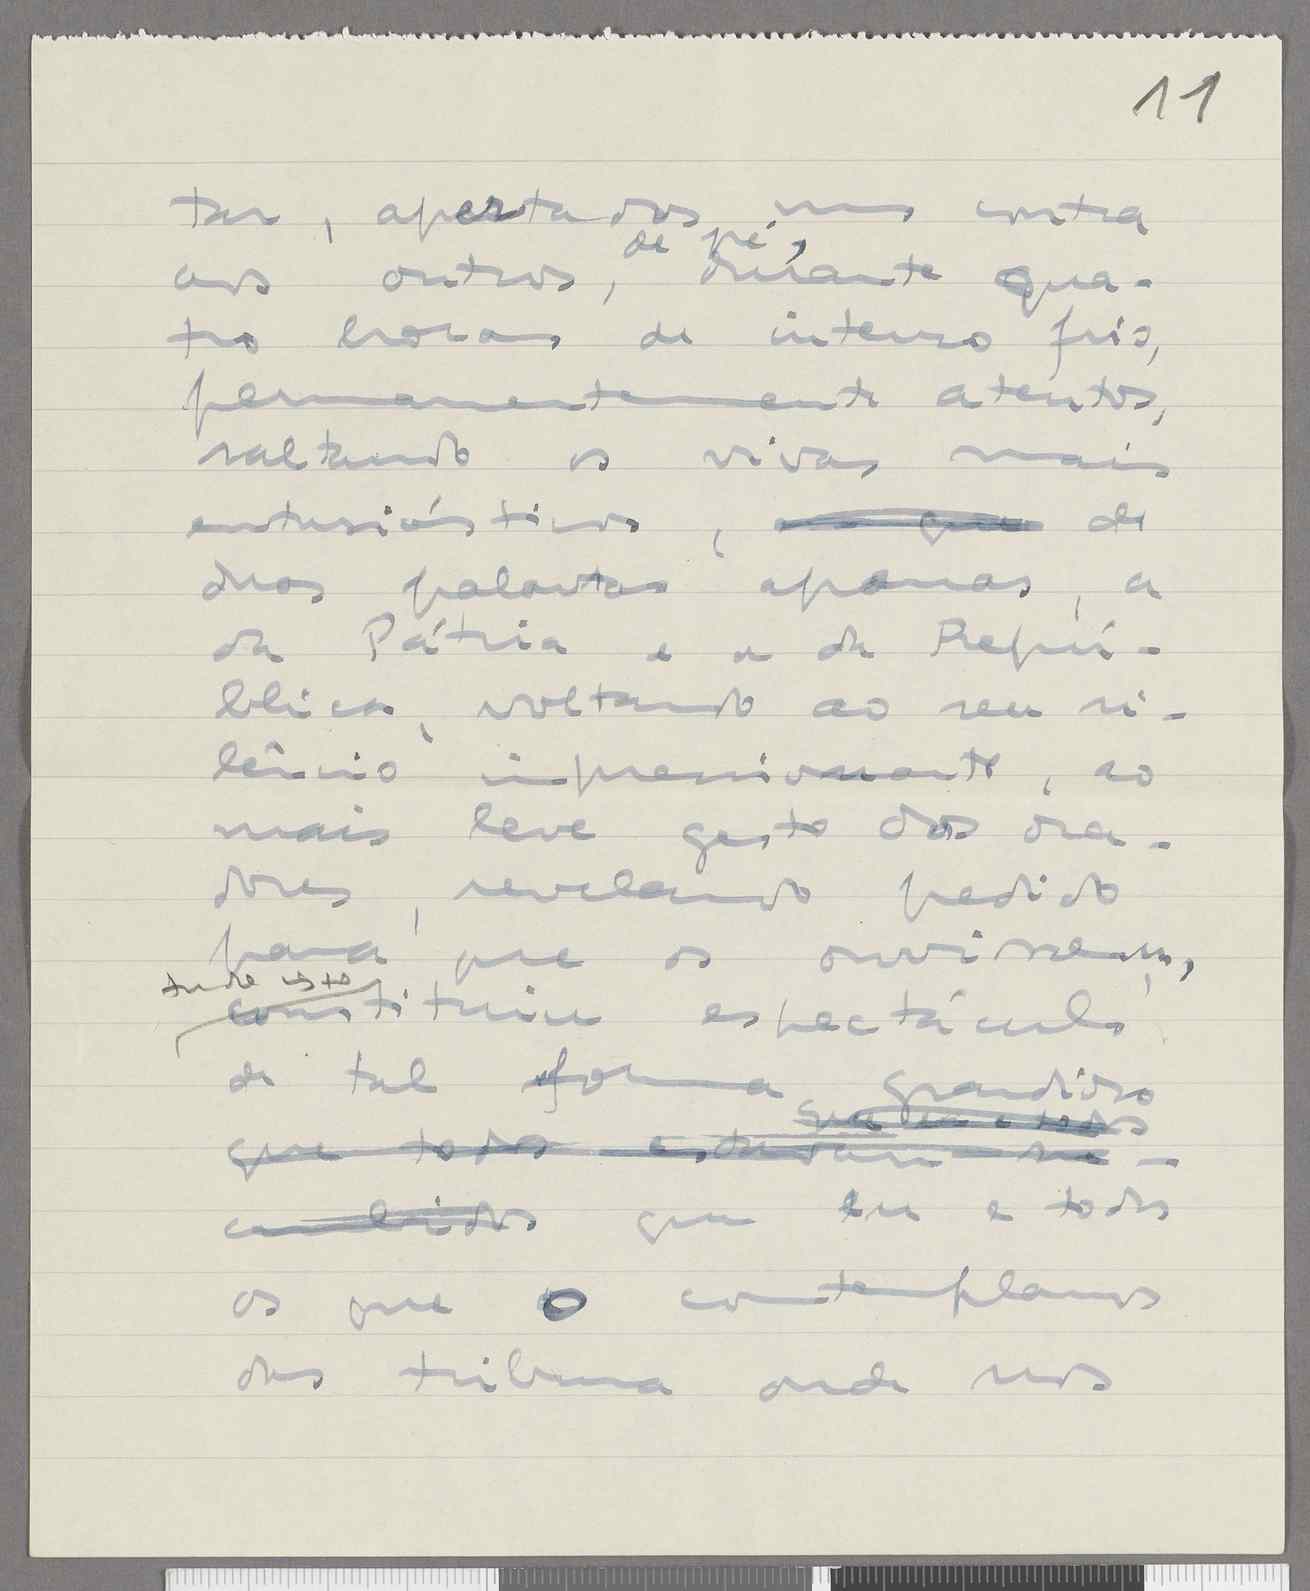 11
tar, apertados uns contra
de pé,
aos outros, durante qua-
tro horas de intenso frio,
permanentemente atentos,
saltando os vivas mais
entusiásticos, ~~o que~~ de
duas palavras apenas, a
da Pátria e a da Repú-
blica, voltando ao seu si-
lêncio impressionante, ao
mais leve gesto dos ora-
dores, revelando pedido
para que os ouvissem,
tudo isto
constituiu espectáculo
de tal forma grandioso
~~que eu e todos~~
~~que todos estavam~~
que eu e todos
os que o contemplamos
das tribuna onde nos